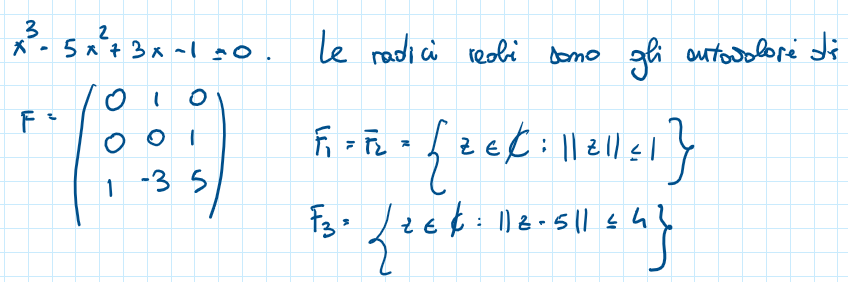 x³ - 5x² + 3x - 1 = 0. Le radici reali sono gli autovalori di
F = ( 0 1 0
0 0 1
1 -3 5 )
F₁ = F₂ = { z ∈ ℂ : ||z|| ≤ 1 }
F₃ = { z ∈ ℂ : ||z - 5|| ≤ 4 }